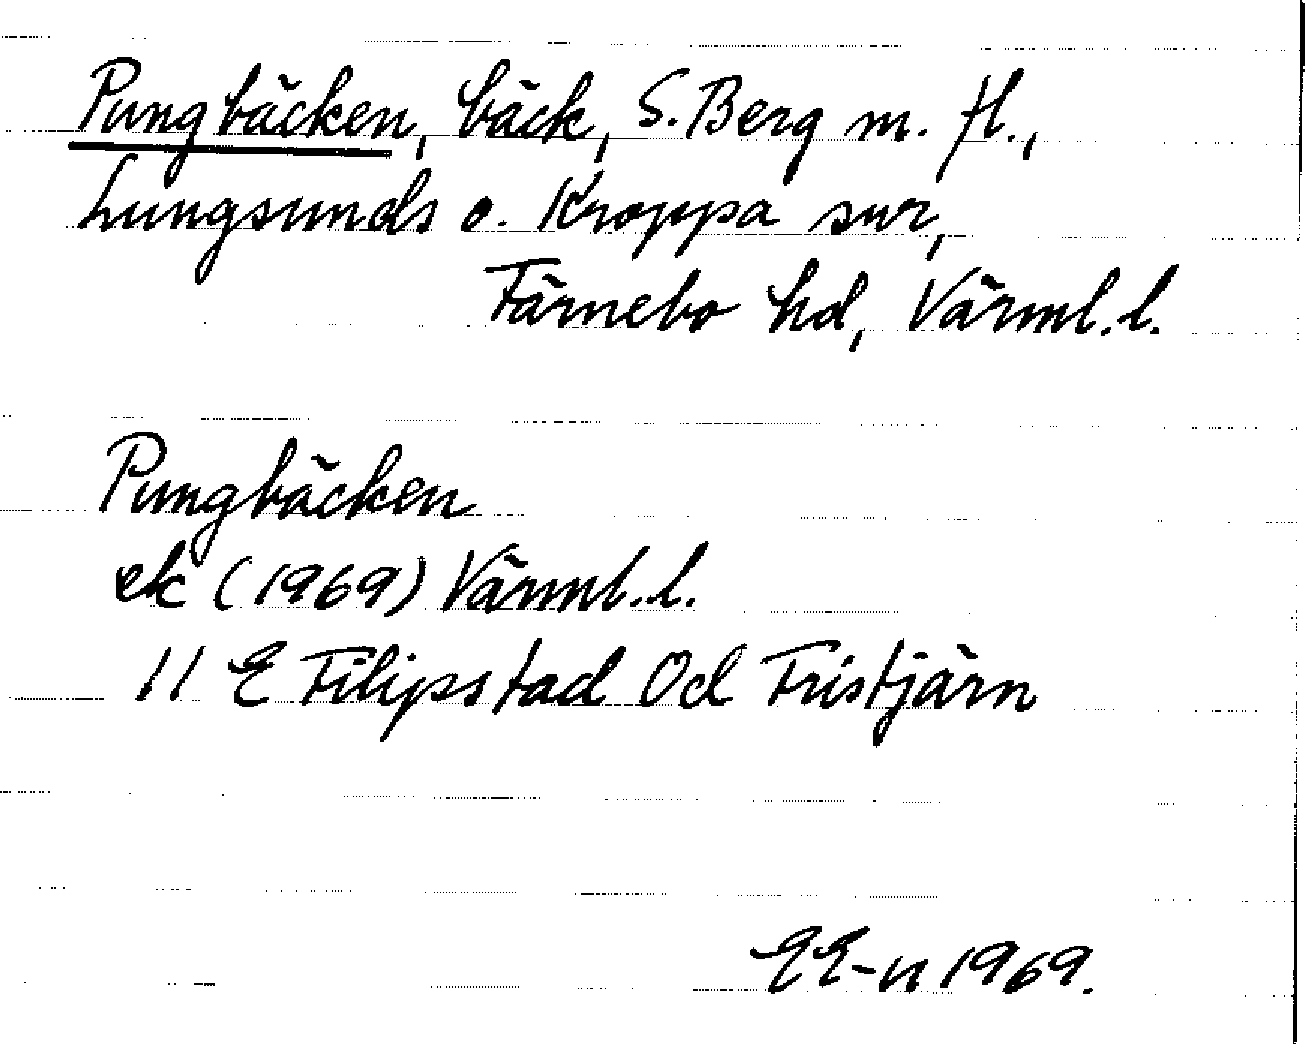 Pungbäcken, bäck, S. Berg m. fl.,
Lungsunds o. Kroppa snr,
Färnebo hd, Värml. l.
Pungbäcken
ek (1969) Värml. l.
11 E Filipstad Od Tristjärn
EE-n 1969.